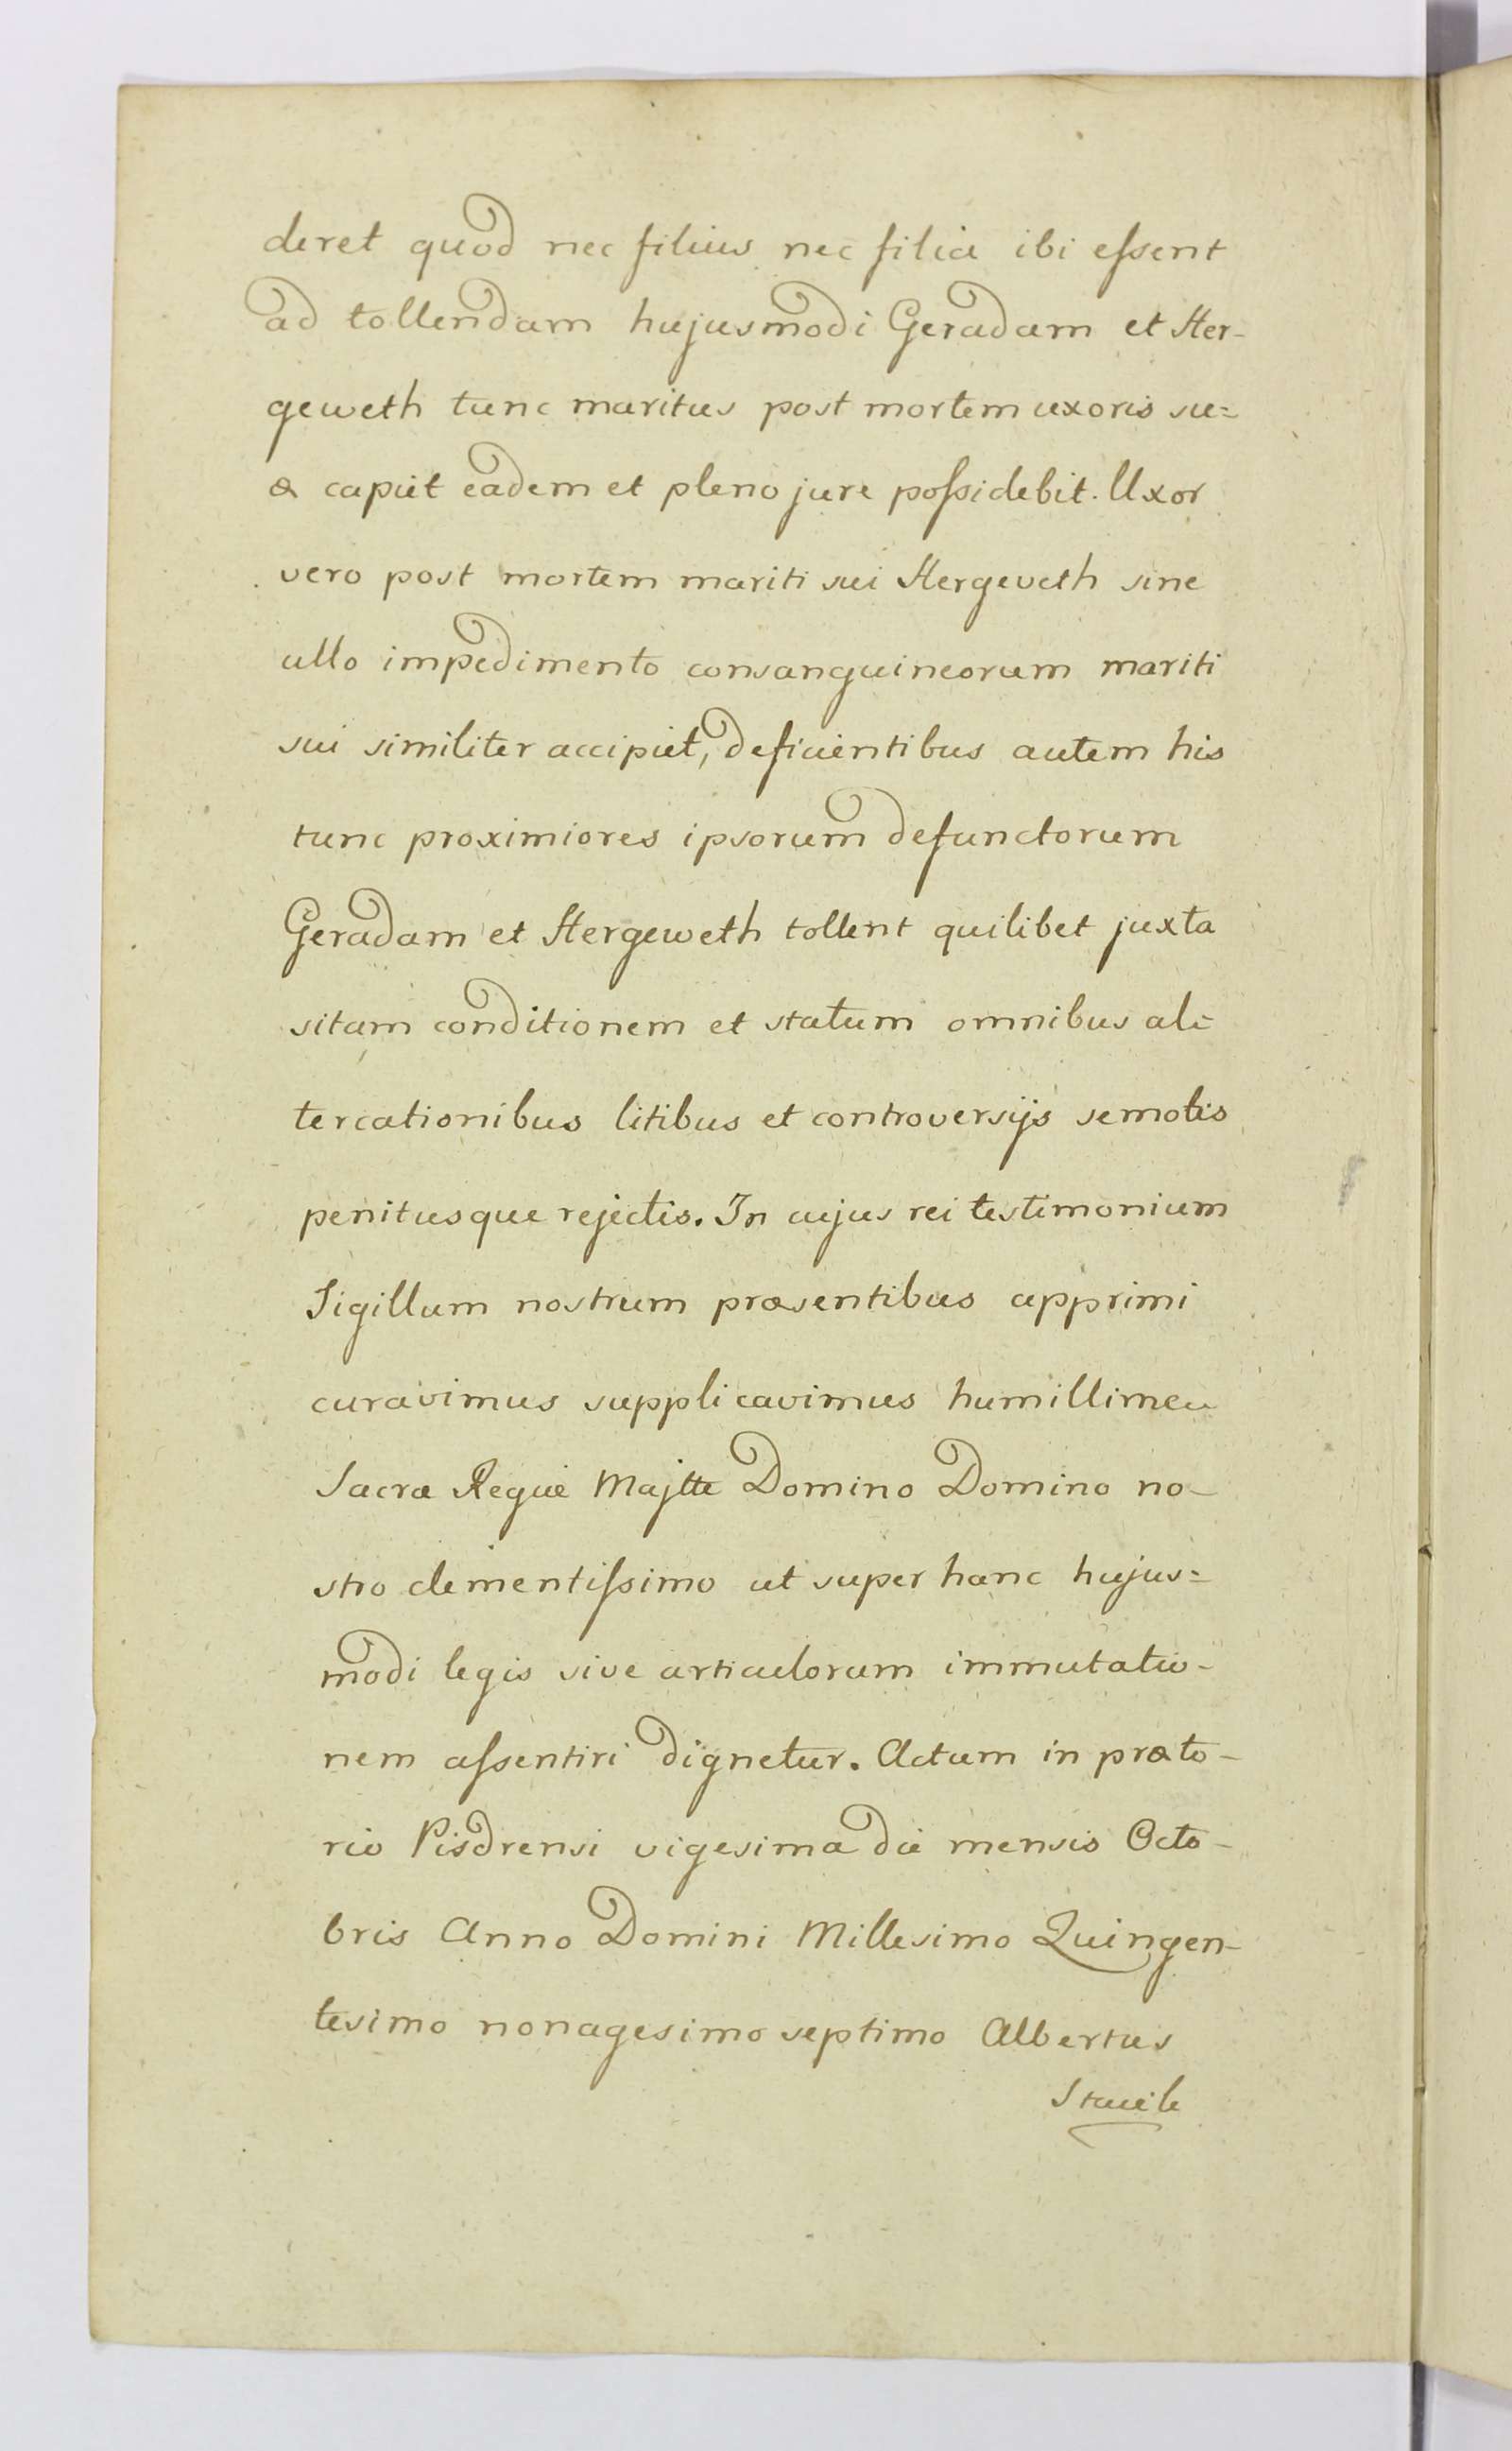 deret quod nec filius nec filia ibi eſsent
ad tollendam hujusmodi Geradam et Her-
geweth tunc maritus post mortem uxoris su=
æ capiet eadem et pleno jure poſsidebit. Uxor
vero post mortem mariti sui Hergeveth sine
ullo impedimento consanguineorum mariti
sui similiter accipiet, deficientibus autem his
tunc proximiores ipsorum defunctorum
Geradam et Hergeweth tollent quilibet juxta
sitam conditionem et statum omnibus al=
tercationibus litibus et controversijs semotis
penitusque rejectis. In cujus rei testimonium
Sigillum nostrum præsentibus apprimi
curavimus supplicavimus humillime
Sacræ Regiæ Majtte Domino Domino no-
stro clementiſsimo ut super hanc hujus=
modi legis sive articulorum immutatio-
nem aſsentiri dignetur. Actum in præto-
rio Pisdrensi vigesima die mensis Octo-
bris Anno Domini Millesimo Quingen-
tesimo nonagesimo septimo Albertus